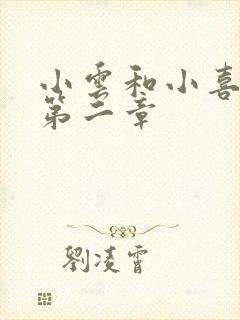 小雲和小喜
第二章
劉凌霄